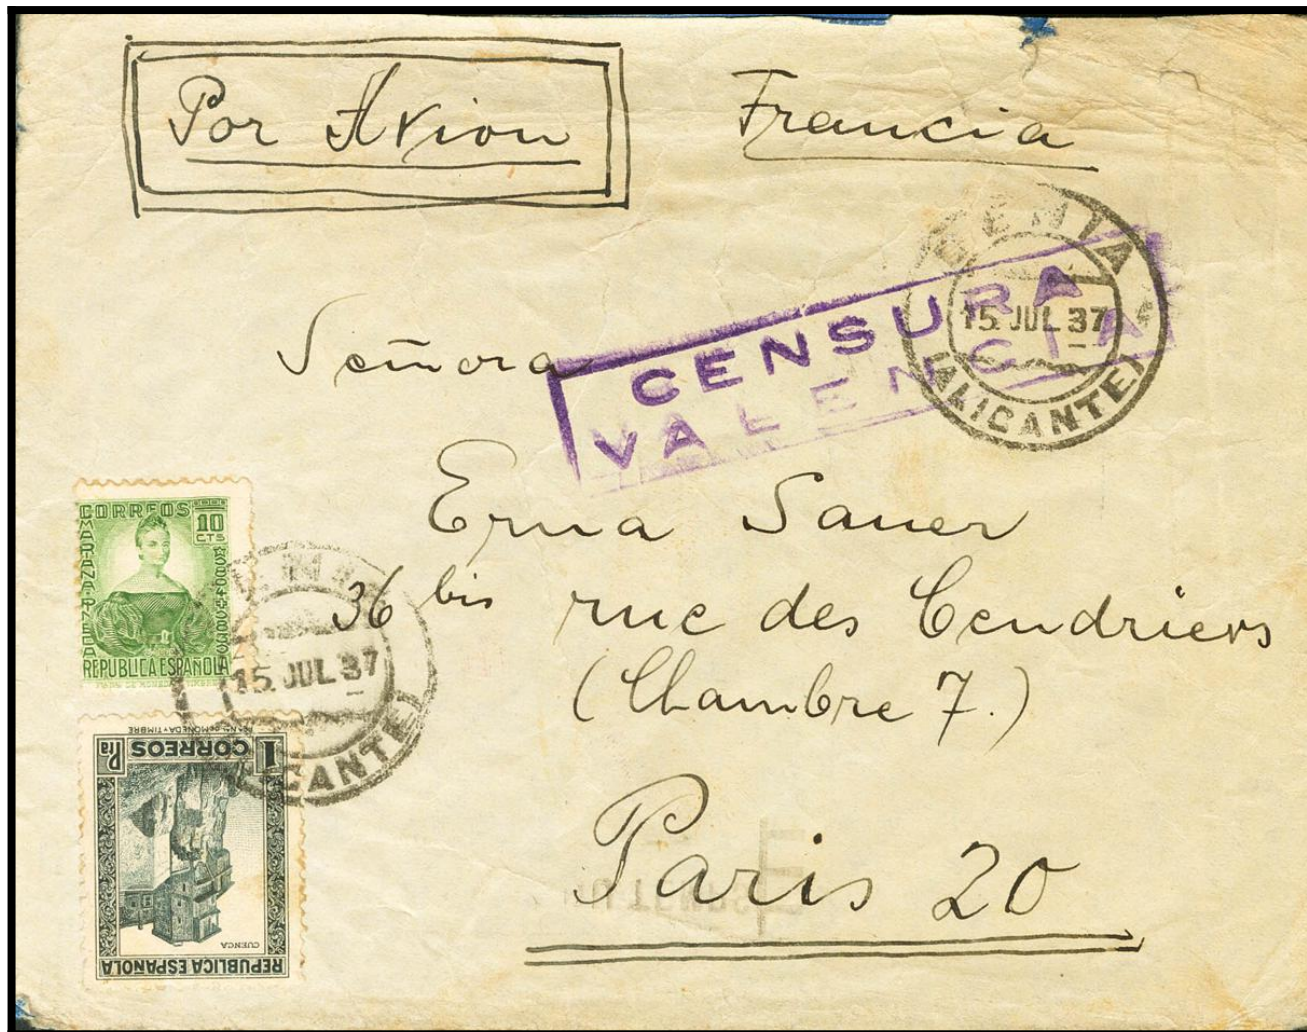 Por Avion
Francia
DENIA
15. JUL 37
(ALICANTE)
CENSURA
VALENCIA
Señora
Erna Sauer
36 bis rue des Cendriers
(Chambre 7.)
Paris 20
CORREOS
10
CTS
MARIANA PINEDA
REPUBLICA ESPAÑOLA
15. JUL 37
ALICANTE)
1 CORREOS Pta
CUENCA
REPUBLICA ESPAÑOLA